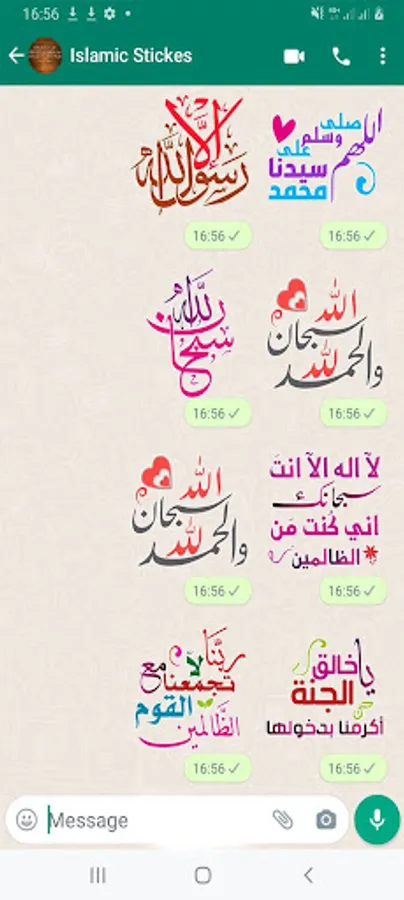 16:56
Islamic Stickes
إلا
رسول الله
اللهم صلى
وسلم
على
سيدنا
محمد
16:56
16:56
سبحان الله
سبحان الله
والحمد لله
16:56
16:56
سبحان الله
والحمد لله
لآ اله الآ انت
سبحانك
اني كُنت مَن
الظالمين
16:56
16:56
ربنا
لا
تجمعنا مع
القوم
الظالمين
ياخالق
الجنة
أكرمنا بدخولها
16:56
16:56
Message